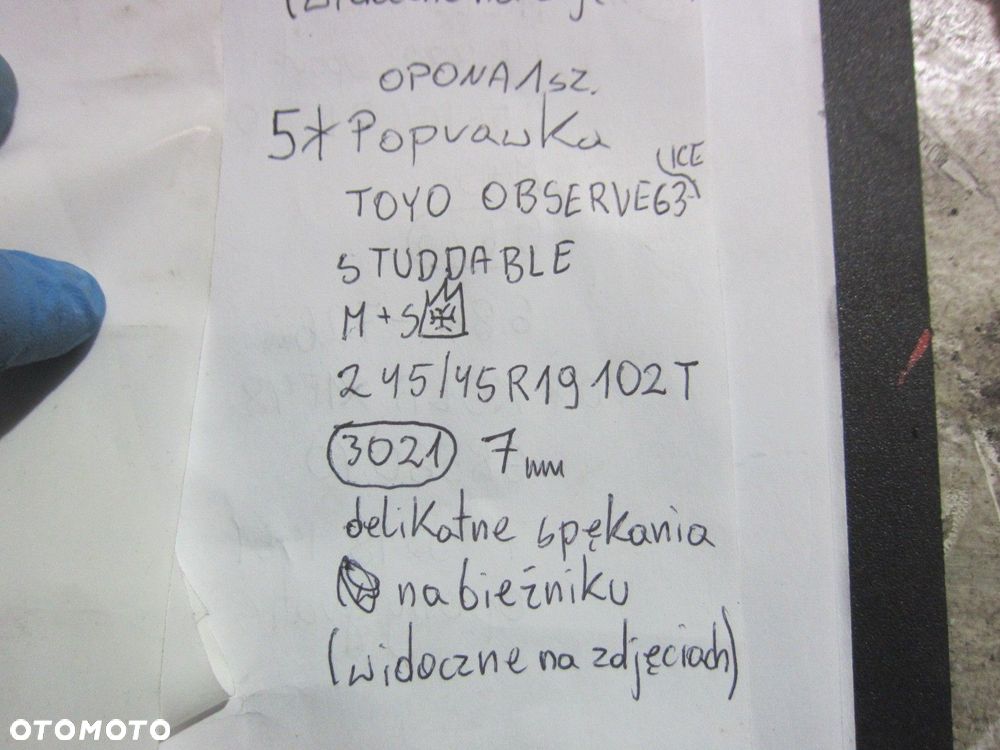 OPONA 1 SZ.
5* Poprawka
ICE
TOYO OBSERVE G3
STUDDABLE
M+S
245/45R19 102T
3021 7mm
delikatne spękania
na bieżniku
(widoczne na zdjęciach)
OTOMOTO